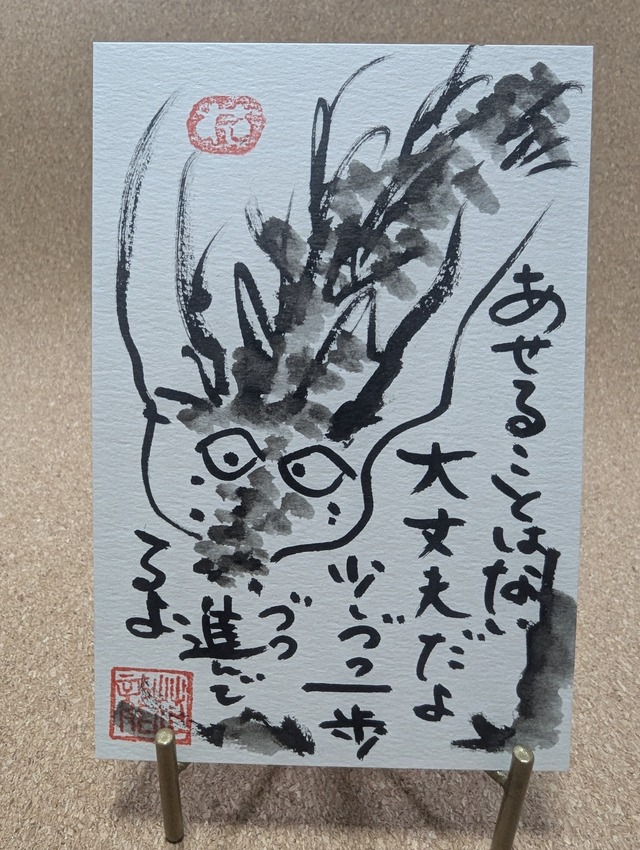 あせることはない
大丈夫だよ
少しづつ一歩
づつ
進んで
るよ